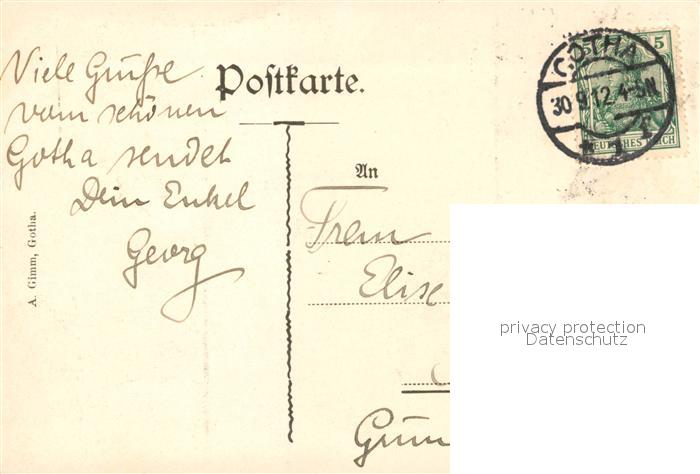 Viele Grüße
vom schönen
Gotha sendet
Dein Enkel
Georg
A. Gimm, Gotha.
Postkarte.
An
Frau
Elise
GOTHA
30 9 12 4-5N
* 1 *
5
DEUTSCHES REICH
privacy protection
Datenschutz